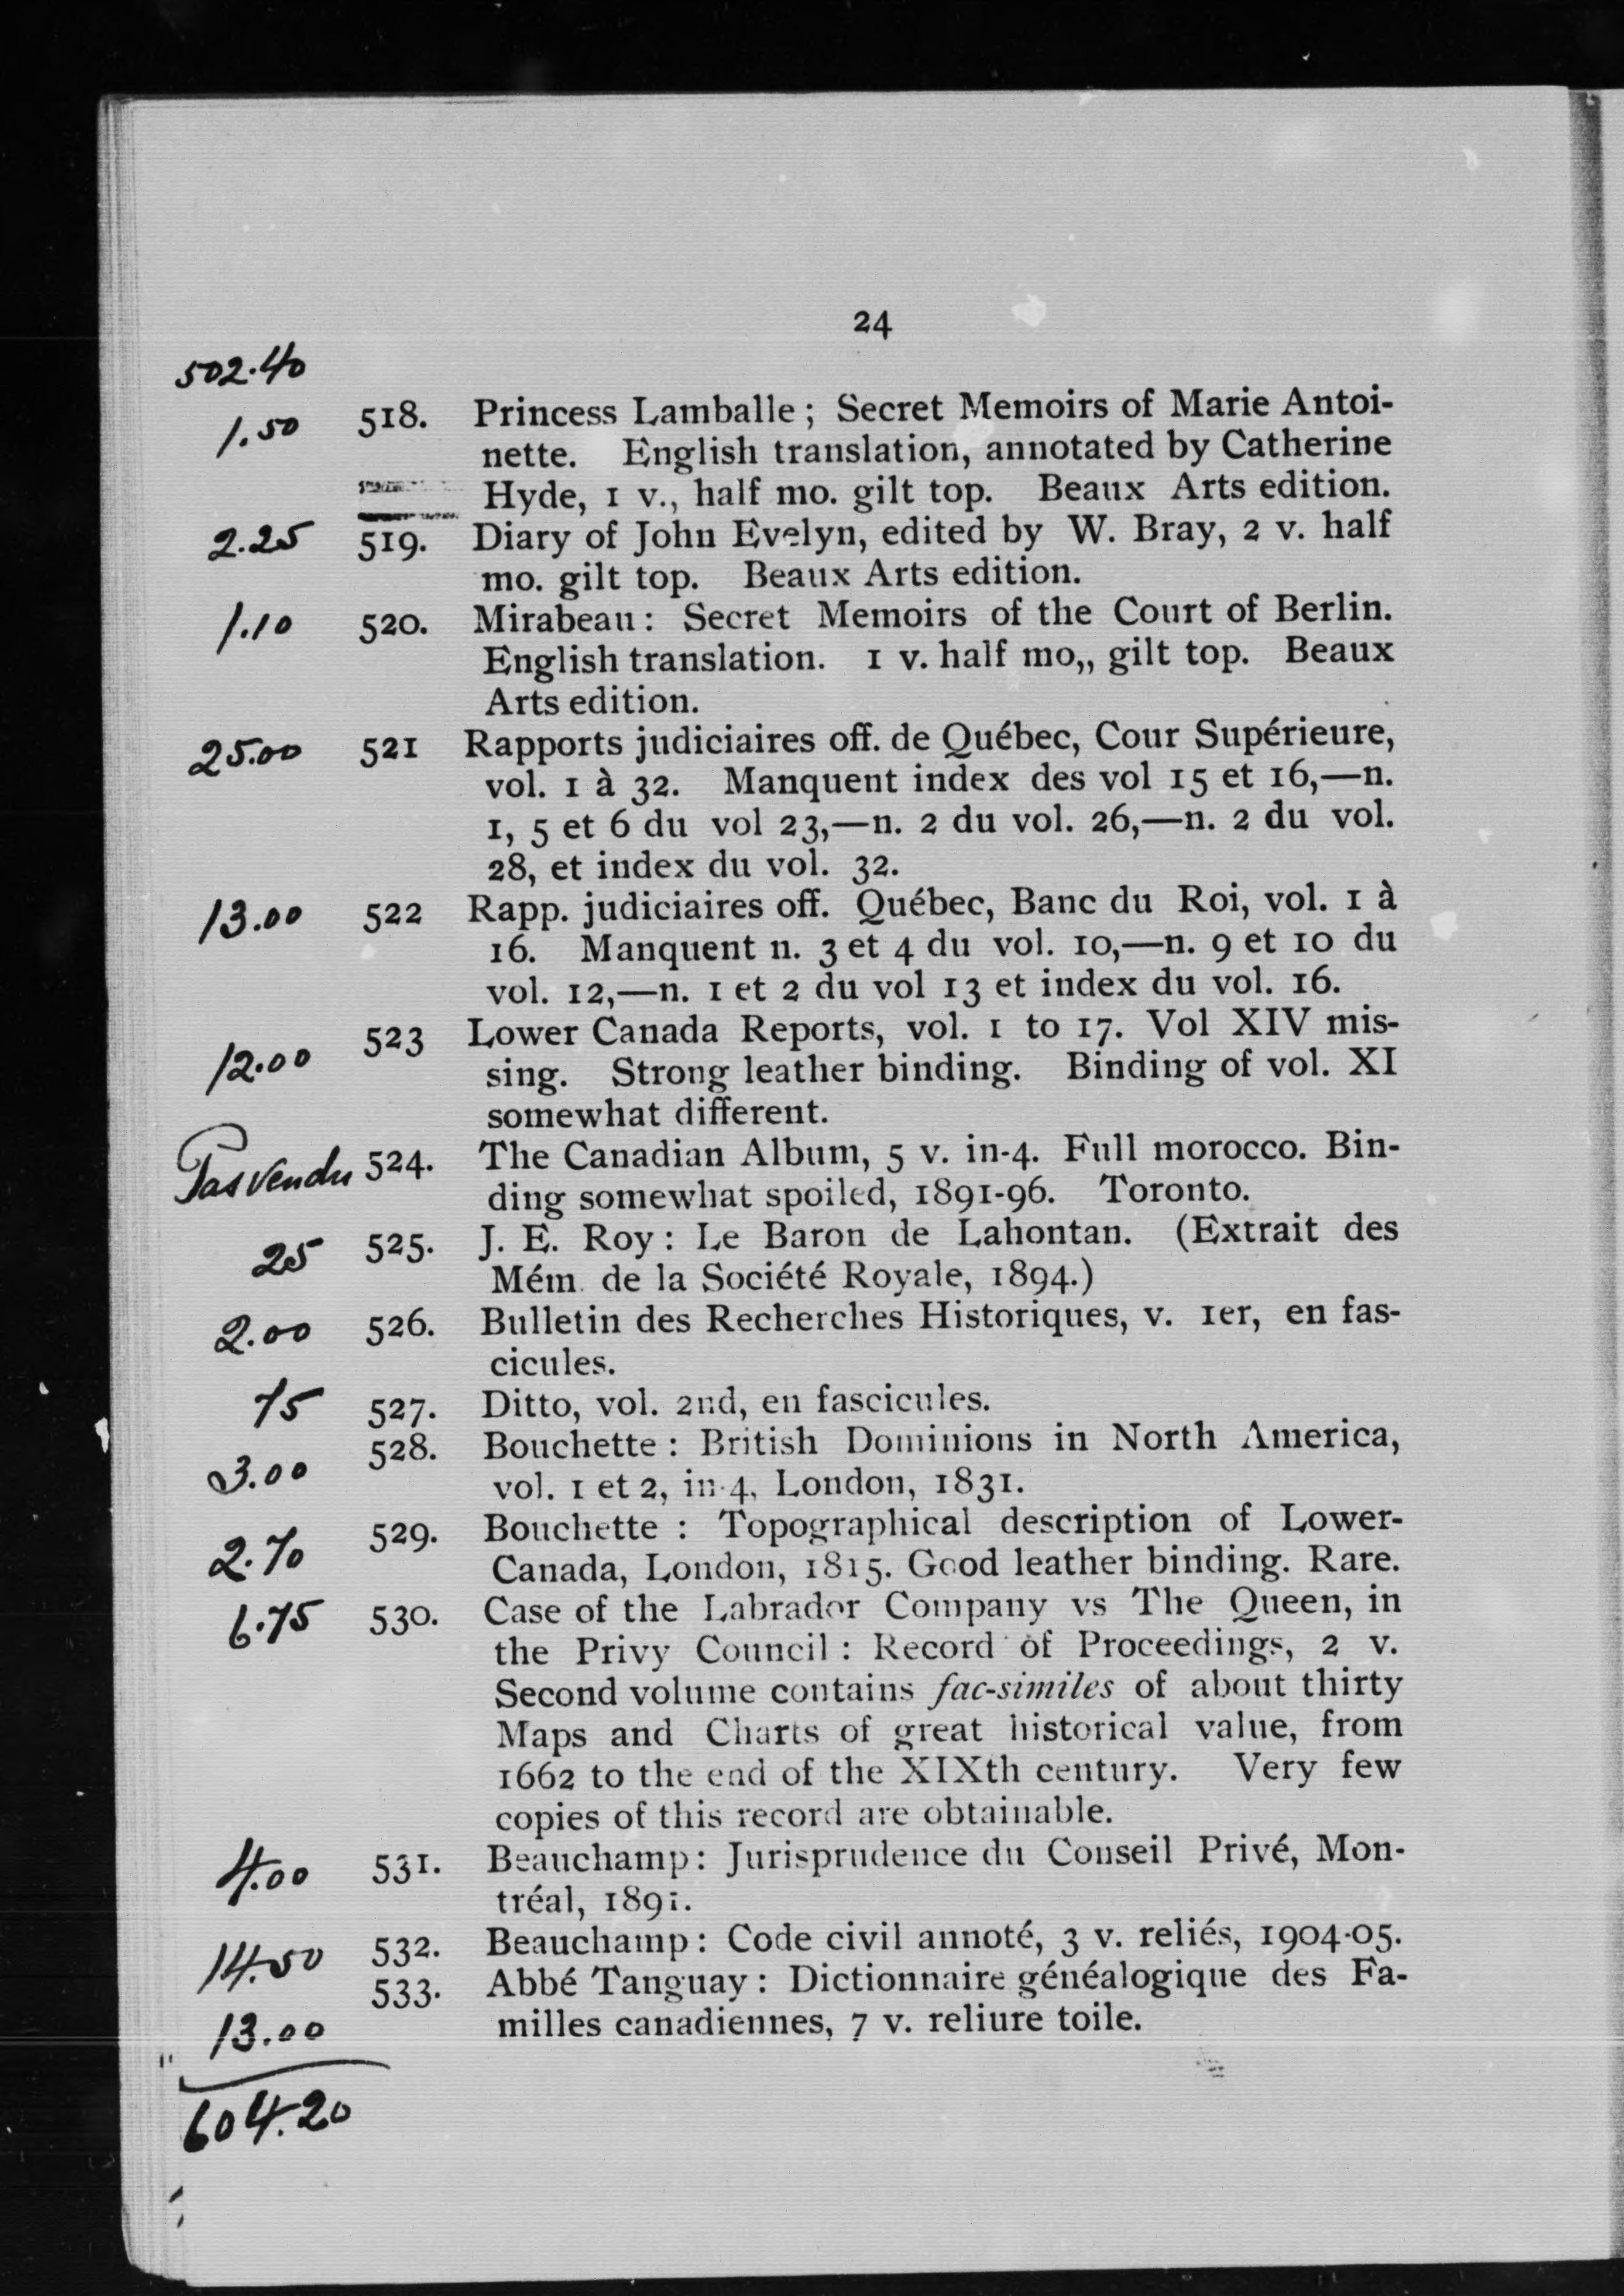 24
502.40
1.50 518. Princess Lamballe ; Secret Memoirs of Marie Antoi-
nette. English translation, annotated by Catherine
Hyde, 1 v., half mo. gilt top. Beaux Arts edition.
2.25 519. Diary of John Evelyn, edited by W. Bray, 2 v. half
mo. gilt top. Beaux Arts edition.
1.10 520. Mirabeau : Secret Memoirs of the Court of Berlin.
English translation. 1 v. half mo,, gilt top. Beaux
Arts edition.
25.00 521 Rapports judiciaires off. de Québec, Cour Supérieure,
vol. 1 à 32. Manquent index des vol 15 et 16,—n.
1, 5 et 6 du vol 23,—n. 2 du vol. 26,—n. 2 du vol.
28, et index du vol. 32.
13.00 522 Rapp. judiciaires off. Québec, Banc du Roi, vol. 1 à
16. Manquent n. 3 et 4 du vol. 10,—n. 9 et 10 du
vol. 12,—n. 1 et 2 du vol 13 et index du vol. 16.
12.00 523 Lower Canada Reports, vol. 1 to 17. Vol XIV mis-
sing. Strong leather binding. Binding of vol. XI
somewhat different.
Pas vendu 524. The Canadian Album, 5 v. in-4. Full morocco. Bin-
ding somewhat spoiled, 1891-96. Toronto.
25 525. J. E. Roy : Le Baron de Lahontan. (Extrait des
Mém. de la Société Royale, 1894.)
2.00 526. Bulletin des Recherches Historiques, v. 1er, en fas-
cicules.
75 527. Ditto, vol. 2nd, en fascicules.
3.00 528. Bouchette : British Dominions in North America,
vol. 1 et 2, in-4, London, 1831.
2.70 529. Bouchette : Topographical description of Lower-
Canada, London, 1815. Good leather binding. Rare.
6.75 530. Case of the Labrador Company vs The Queen, in
the Privy Council : Record of Proceedings, 2 v.
Second volume contains fac-similes of about thirty
Maps and Charts of great historical value, from
1662 to the end of the XIXth century. Very few
copies of this record are obtainable.
4.00 531. Beauchamp : Jurisprudence du Conseil Privé, Mon-
tréal, 1891.
14.50 532. Beauchamp : Code civil annoté, 3 v. reliés, 1904-05.
533. Abbé Tanguay : Dictionnaire généalogique des Fa-
13.00 milles canadiennes, 7 v. reliure toile.
604.20